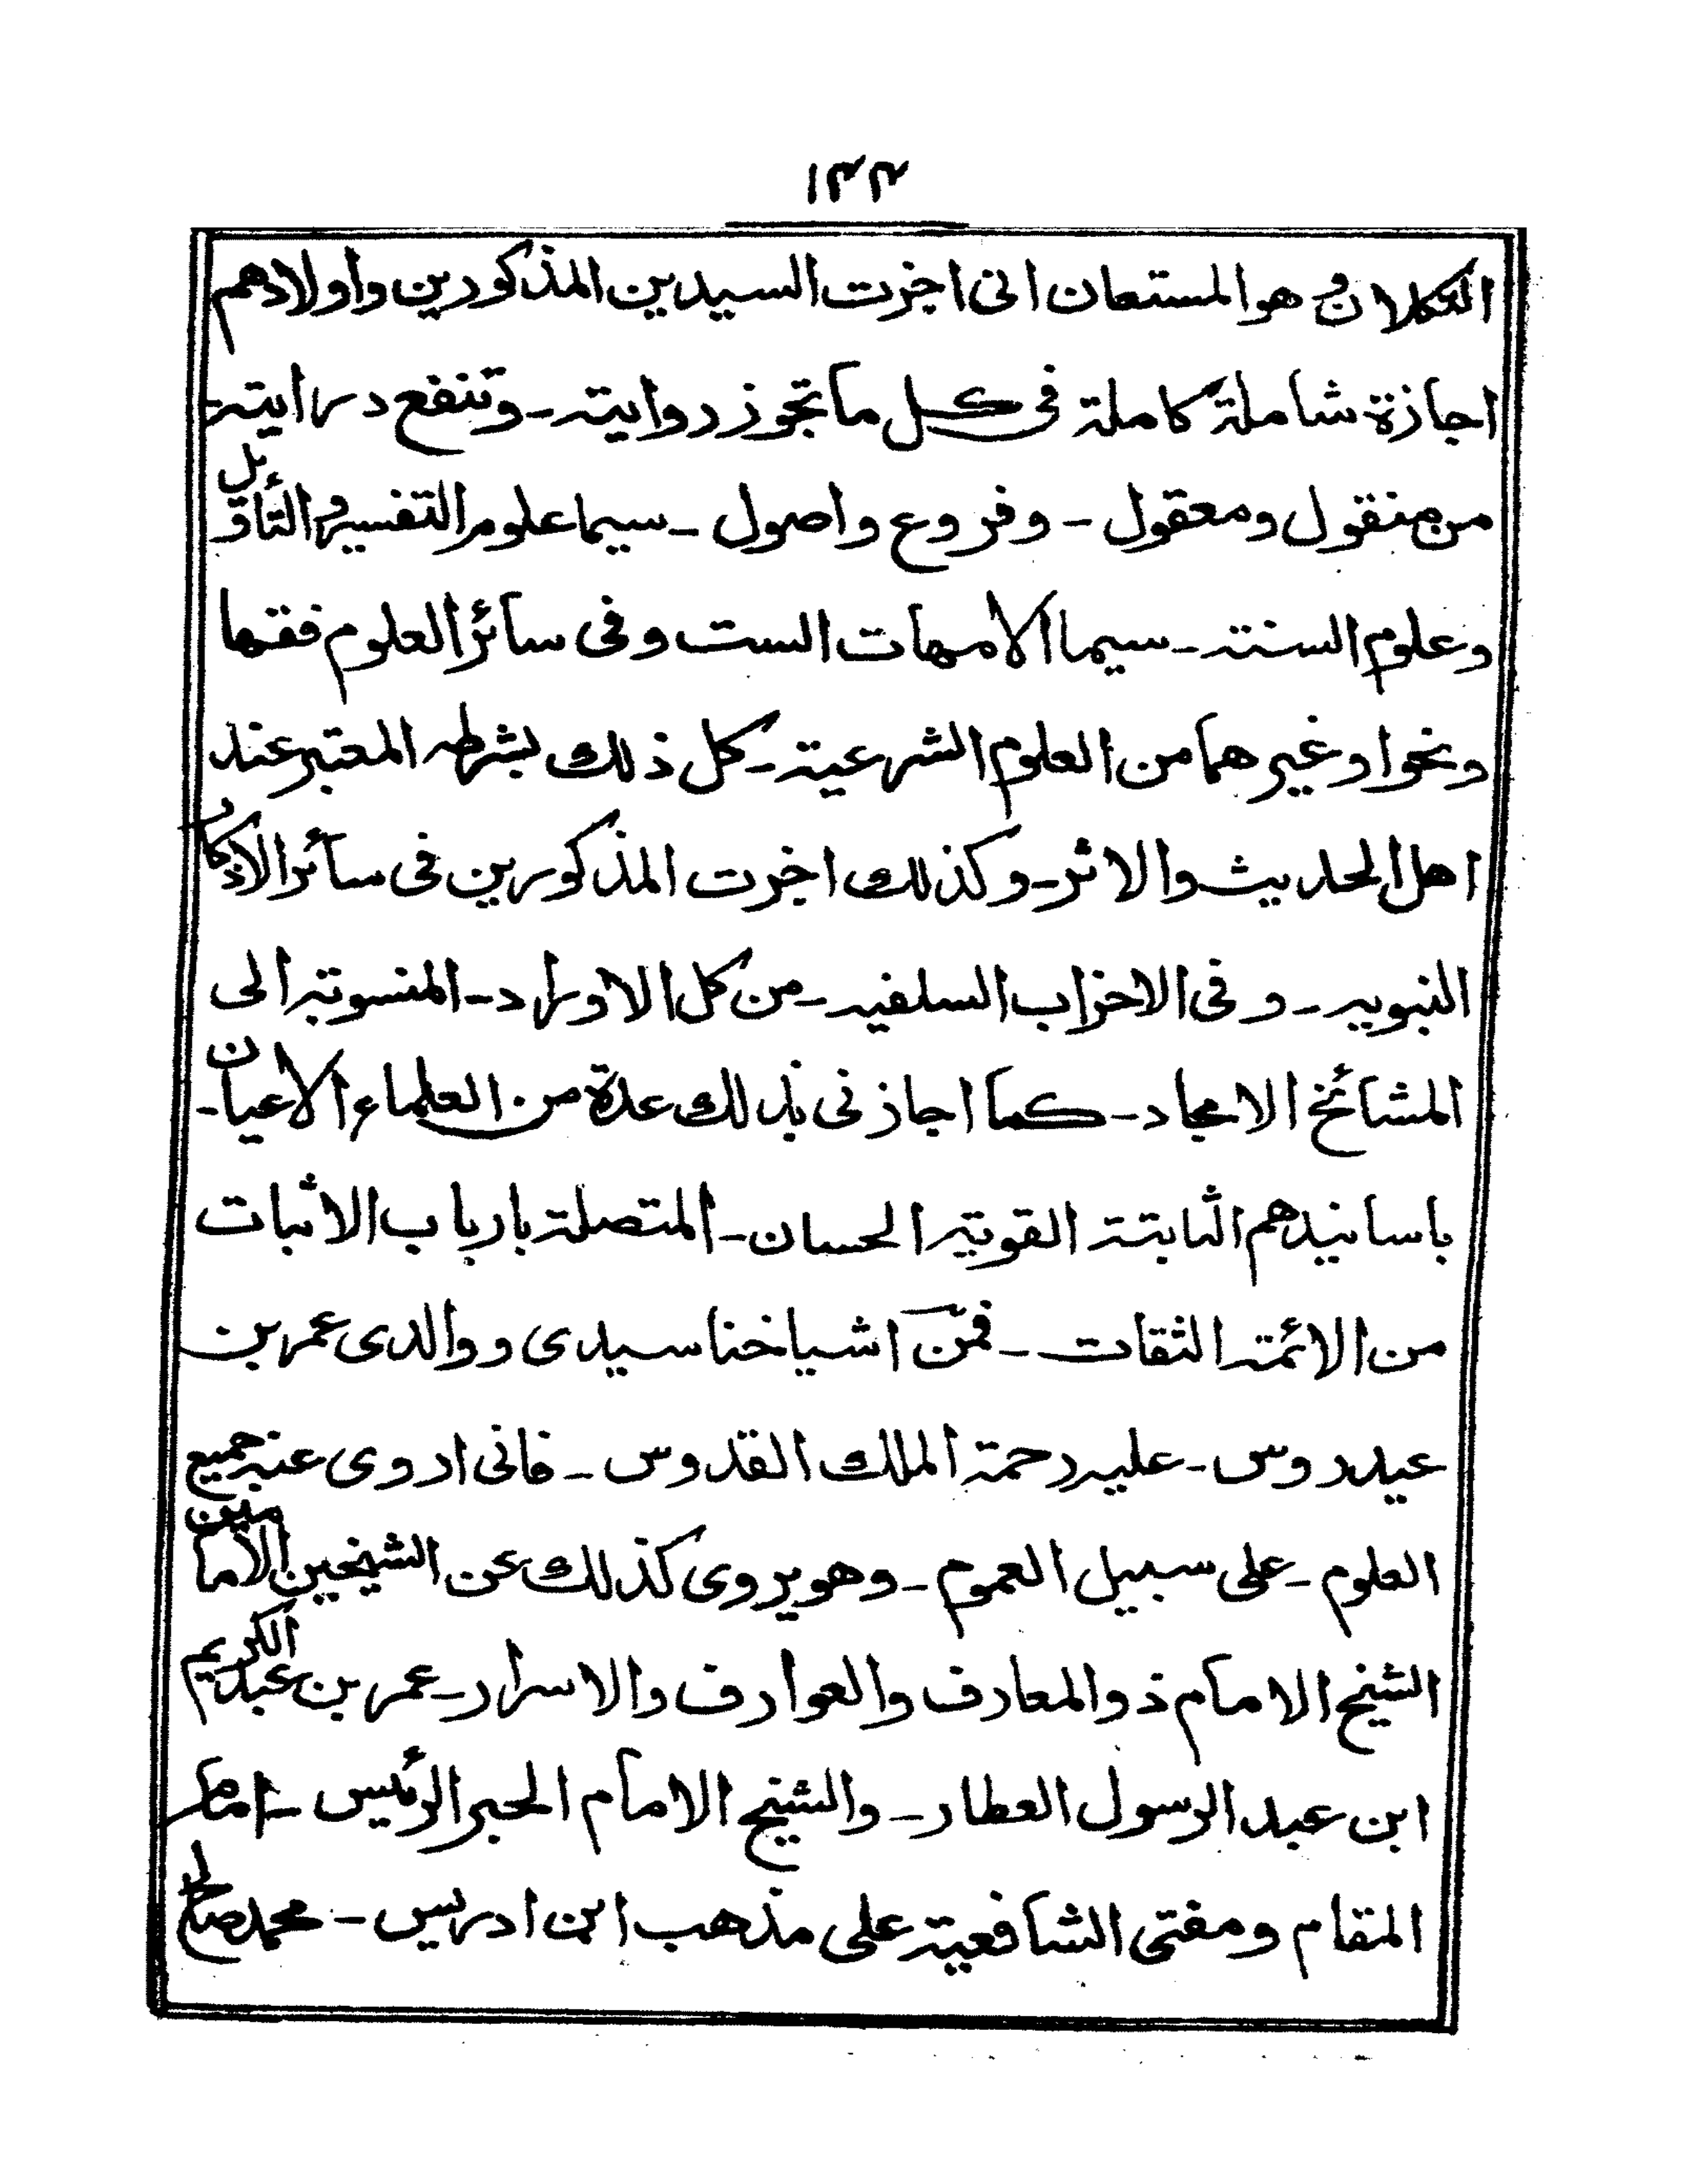 ١٣٣
التكلان وهو المستعان انى اجزت السيدين المذكورين واولادهم
اجازة شاملة كاملة فى كل ما تجوز روايته - وتنفع درايته -
من منقول ومعقول - وفروع واصول - سيما علوم التفسير والتأويل
وعلوم السنة - سيما الامهات الست وفى سائر العلوم فقها
ونحوا وغيرهما من العلوم الشرعية - كل ذلك بشرطه المعتبر عند
اهل الحديث والاثر - وكذلك اجزت المذكورين فى سائر الاذكار
النبويه - وفى الاحزاب السلفيه - من كل الاوراد - المنسوبة الى
المشائخ الامجاد - كما اجازنى بذلك عدة من العلماء الاعيان -
باسانيدهم الثابتة القوية الحسان - المتصلة بارباب الاثبات
من الائمة الثقات - فمن اشياخنا سيدى ووالدى عمر بن
عيدروس - عليه رحمة الملك القدوس - فانى اروى عنه جميع
العلوم - على سبيل العموم - وهو يروى كذلك عن الشيخين الامامين
الشيخ الامام ذو المعارف والعوارف والاسرار - عمر بن عبد الكريم
ابن عبد الرسول العطار - والشيخ الامام الحبر الرئيس - امام
المقام ومفتى الشافعية على مذهب ابن ادريس - محمد صالح